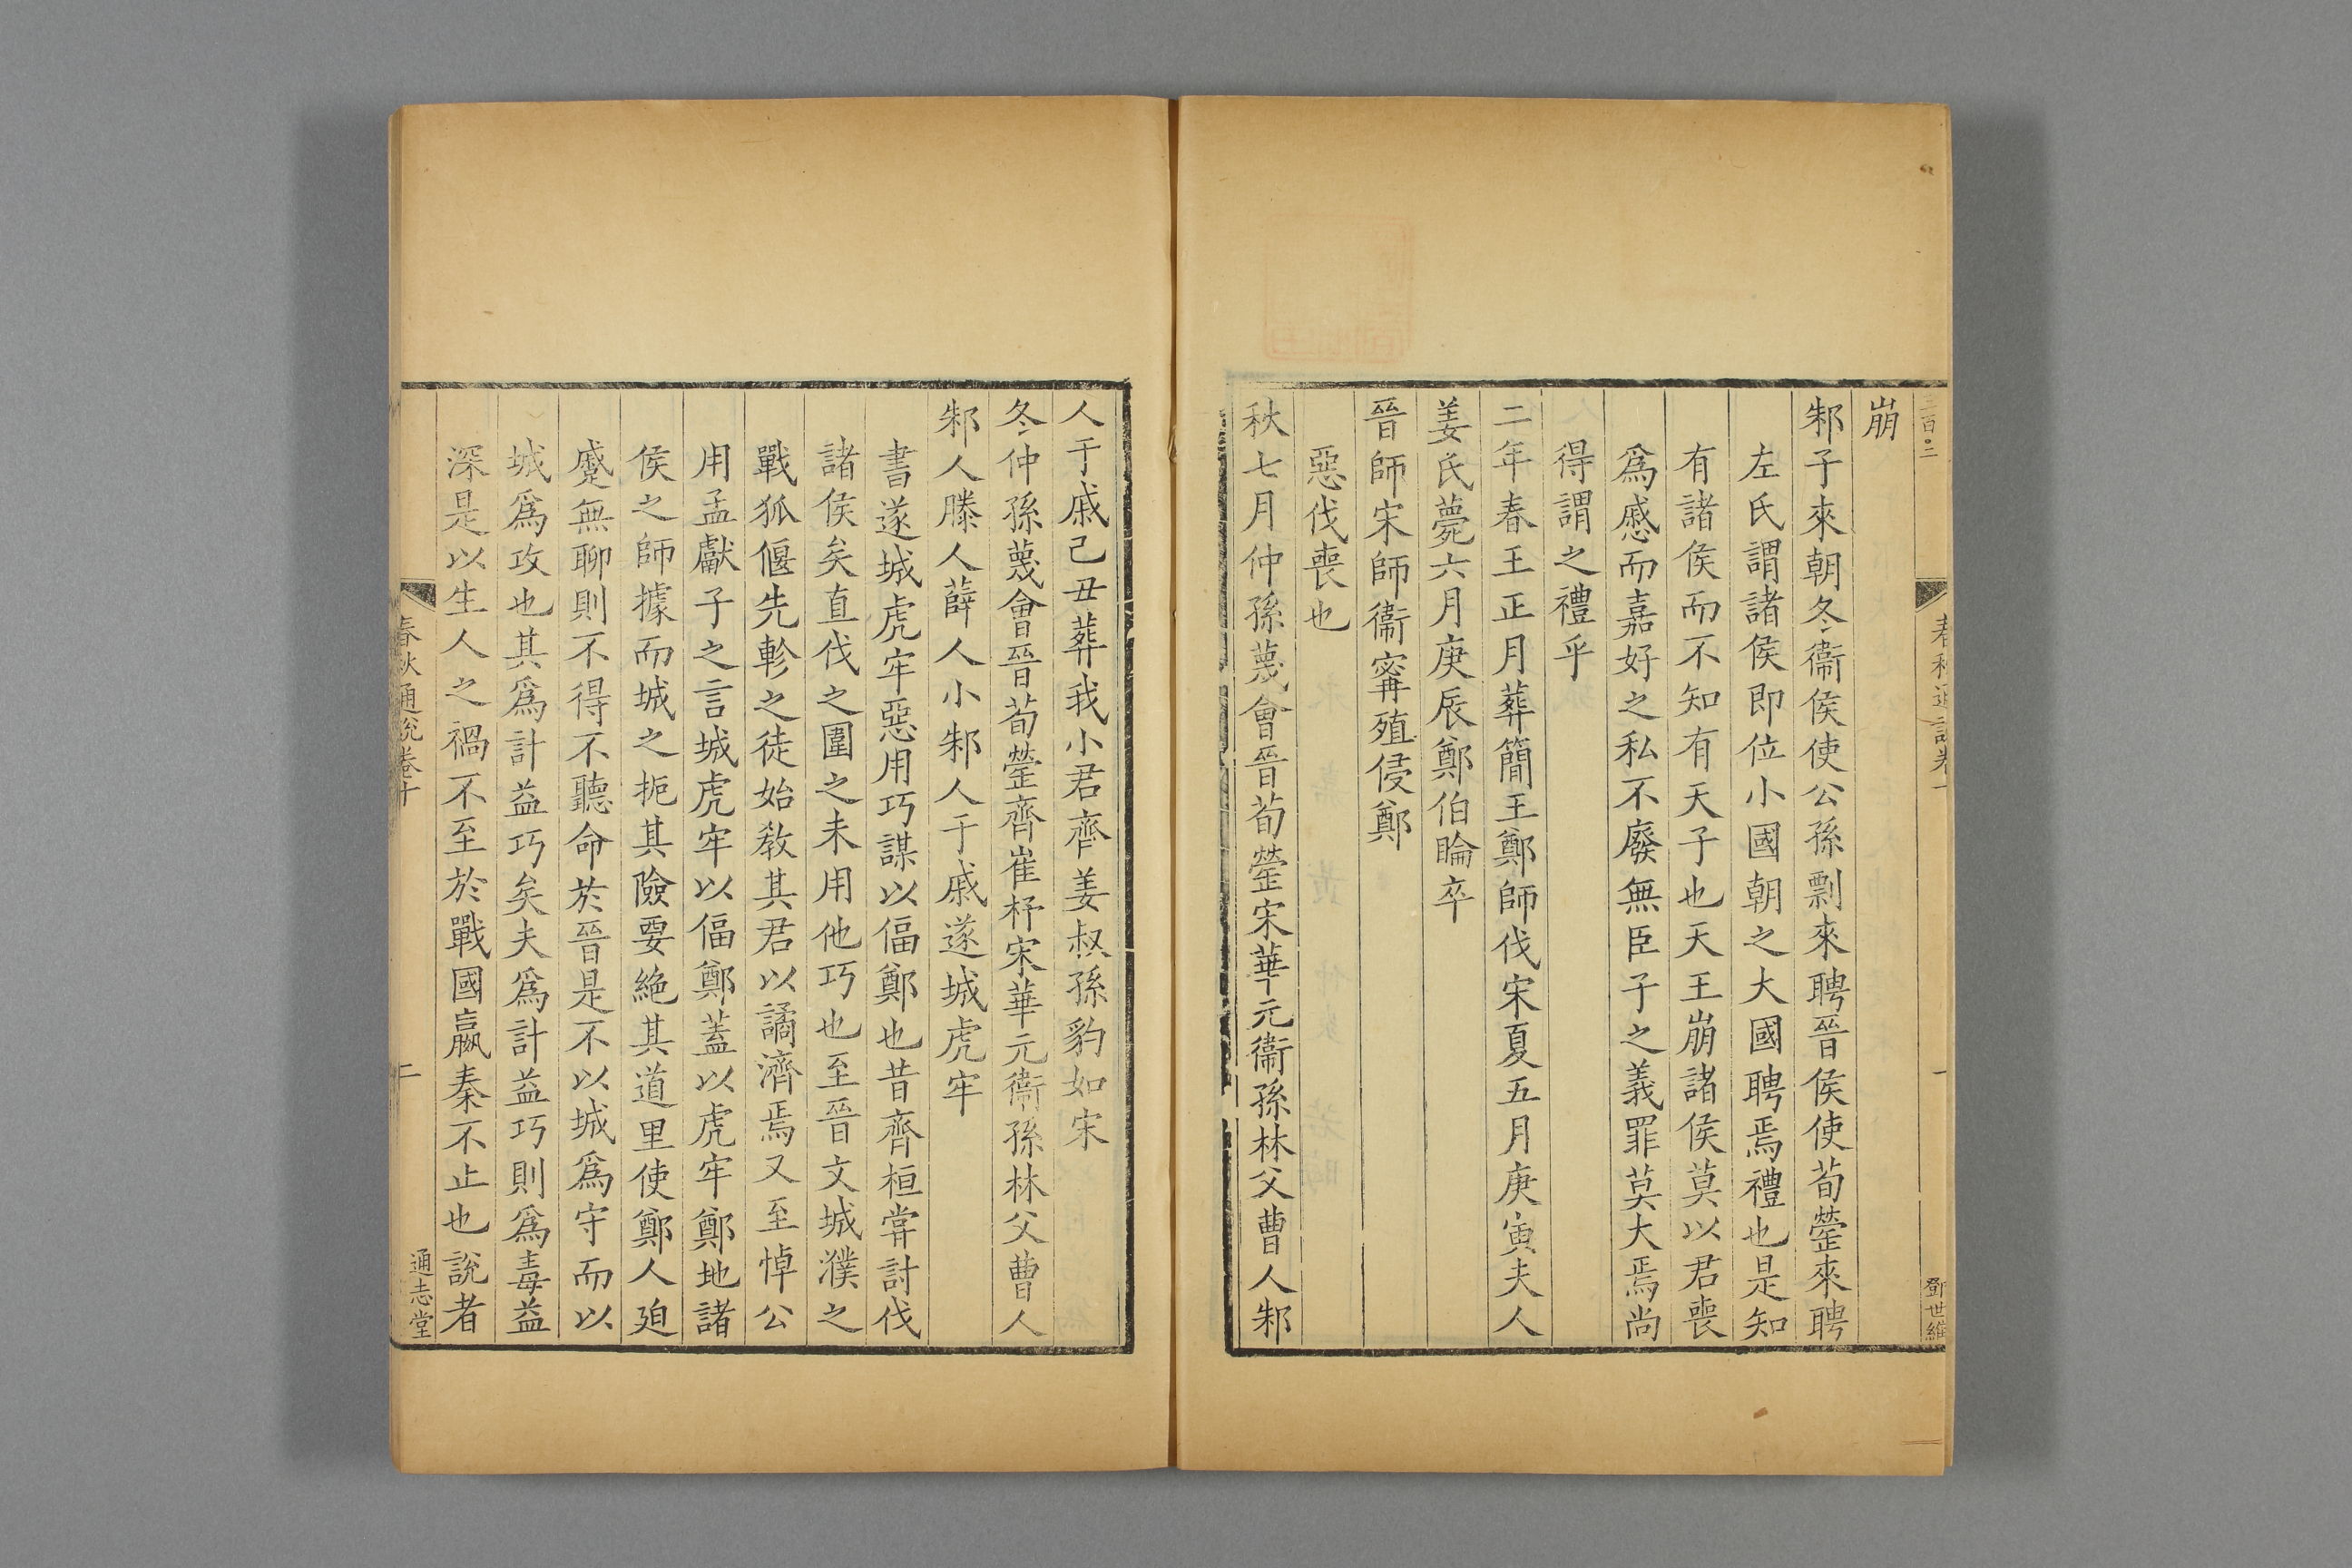 崩
邾子來朝冬衞侯使公孫剽來聘晉侯使荀罃來聘
左氏謂諸侯即位小國朝之大國聘焉禮也是知
有諸侯而不知有天子也天王崩諸侯莫以君喪
爲慼而嘉好之私不廢無臣子之義罪莫大焉尚
得謂之禮乎
二年春王正月葬簡王鄭師伐宋夏五月庚寅夫人
姜氏薨六月庚辰鄭伯睔卒
晉師宋師衞甯殖侵鄭
惡伐喪也
秋七月仲孫蔑會晉荀罃宋華元衞孫林父曹人邾
人于戚己丑葬我小君齊姜叔孫豹如宋
冬仲孫蔑會晉荀罃齊崔杼宋華元衞孫林父曹人
邾人滕人薛人小邾人于戚遂城虎牢
書遂城虎牢惡用巧謀以偪鄭也昔齊桓甞討伐
諸侯矣直伐之圍之未用他巧也至晉文城濮之
戰狐偃先軫之徒始敎其君以譎濟焉又至悼公
用孟獻子之言城虎牢以偪鄭蓋以虎牢鄭地諸
侯之師據而城之扼其險要絶其道里使鄭人廹
蹙無聊則不得不聽命於晉是不以城爲守而以
城爲攻也其爲計益巧矣夫爲計益巧則爲毒益
深是以生人之禍不至於戰國嬴秦不止也說者
春秋通說卷十
二
通志堂